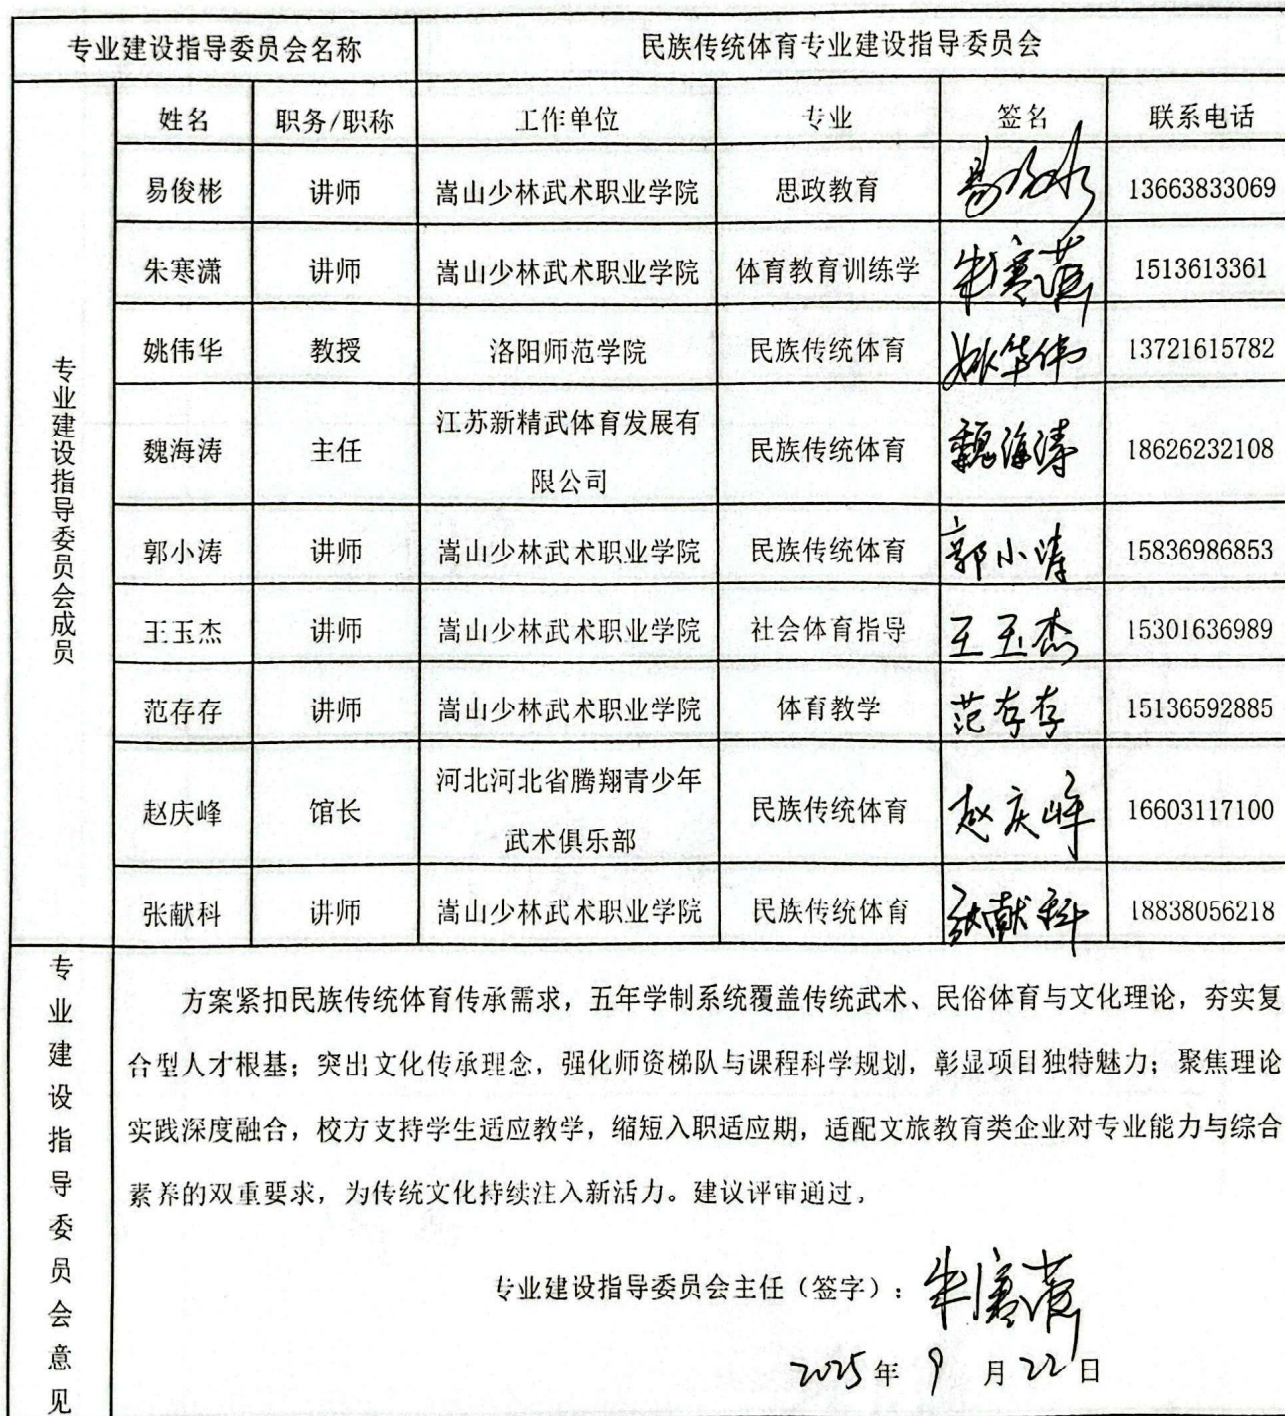 专业建设指导委员会名称 民族传统体育专业建设指导委员会
专业建设指导委员会成员
姓名 职务/职称 工作单位 专业 签名 联系电话
易俊彬 讲师 嵩山少林武术职业学院 思政教育 13663833069
朱寒潇 讲师 嵩山少林武术职业学院 体育教育训练学 朱寒潇 1513613361
姚伟华 教授 洛阳师范学院 民族传统体育 姚华伟 13721615782
魏海涛 主任 江苏新精武体育发展有
限公司 民族传统体育 魏海涛 18626232108
郭小涛 讲师 嵩山少林武术职业学院 民族传统体育 郭小涛 15836986853
王玉杰 讲师 嵩山少林武术职业学院 社会体育指导 王玉杰 15301636989
范存存 讲师 嵩山少林武术职业学院 体育教学 范存存 15136592885
赵庆峰 馆长 河北河北省腾翔青少年
武术俱乐部 民族传统体育 赵庆峰 16603117100
张献科 讲师 嵩山少林武术职业学院 民族传统体育 张献科 18838056218
专业建设指导委员会意见
方案紧扣民族传统体育传承需求，五年学制系统覆盖传统武术、民俗体育与文化理论，夯实复
合型人才根基；突出文化传承理念，强化师资梯队与课程科学规划，彰显项目独特魅力；聚焦理论
实践深度融合，校方支持学生适应教学，缩短入职适应期，适配文旅教育类企业对专业能力与综合
素养的双重要求，为传统文化持续注入新活力。建议评审通过。
专业建设指导委员会主任（签字）：朱寒潇
2025年 9 月 22 日